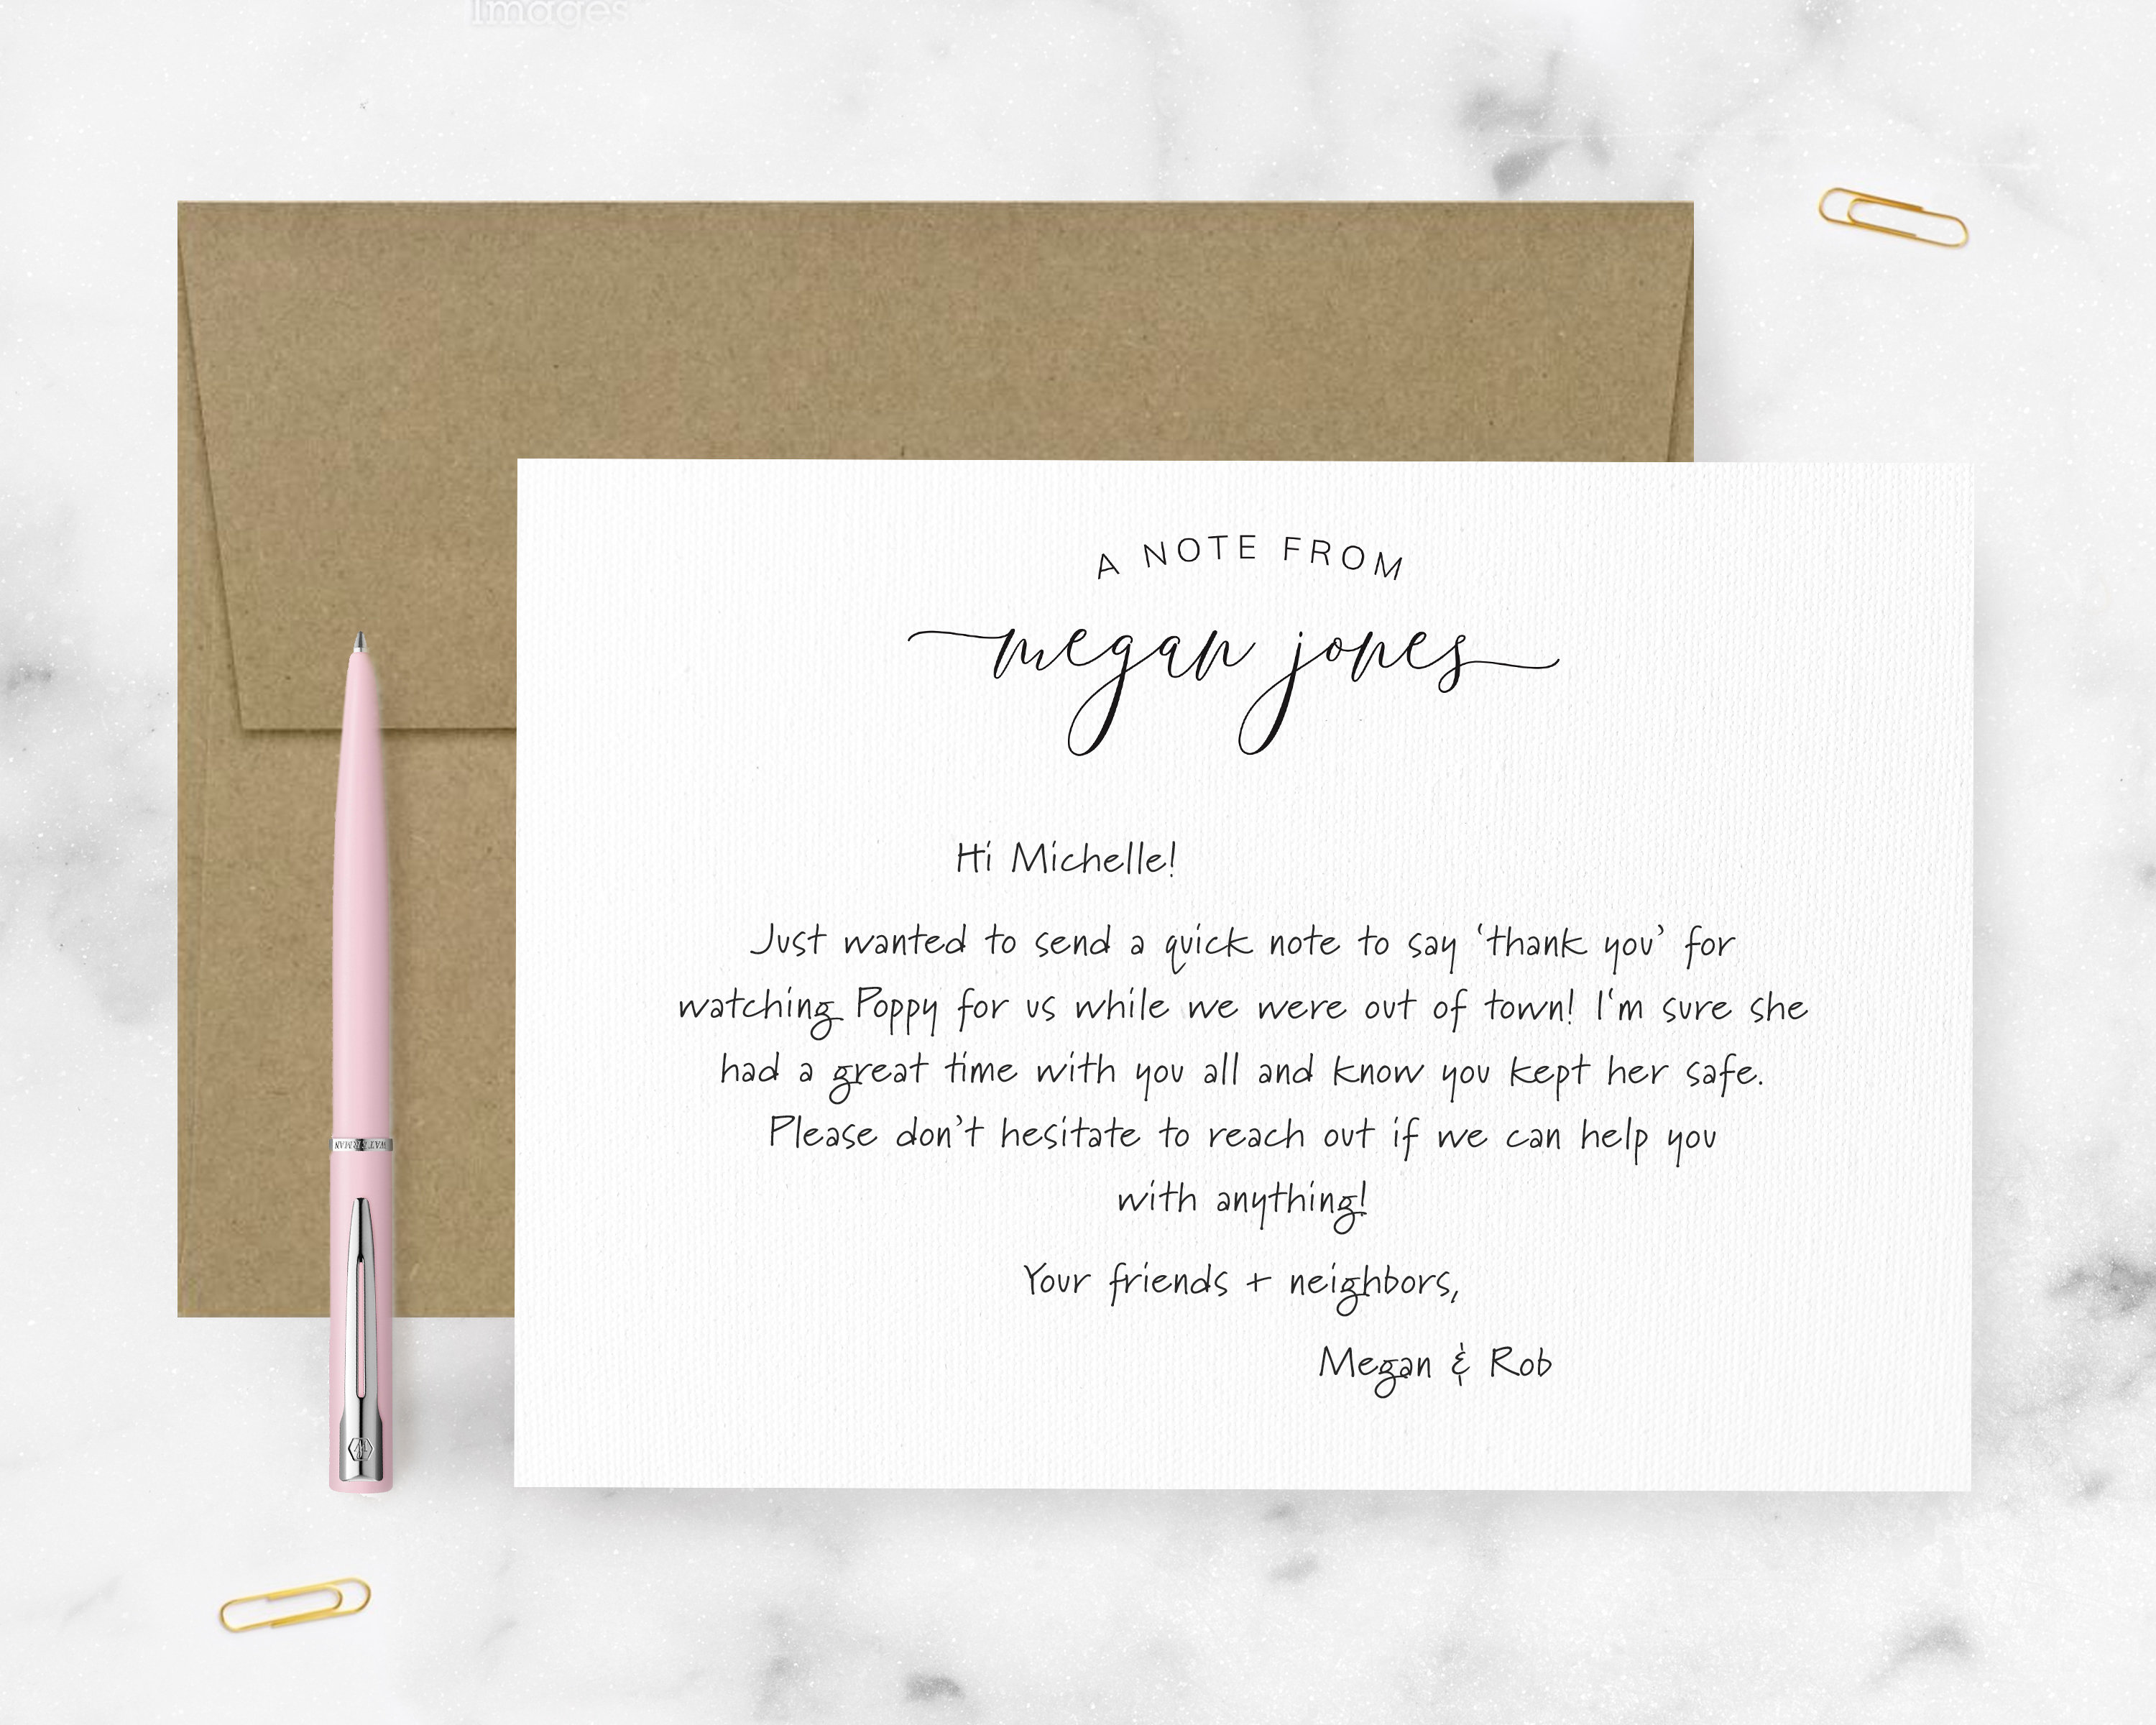 Images
A NOTE FROM
megan jones
Hi Michelle!
Just wanted to send a quick note to say ‘thank you’ for
watching Poppy for us while we were out of town! I'm sure she
had a great time with you all and know you kept her safe.
Please don't hesitate to reach out if we can help you
with anything!
Your friends + neighbors,
Megan & Rob
WATERMAN